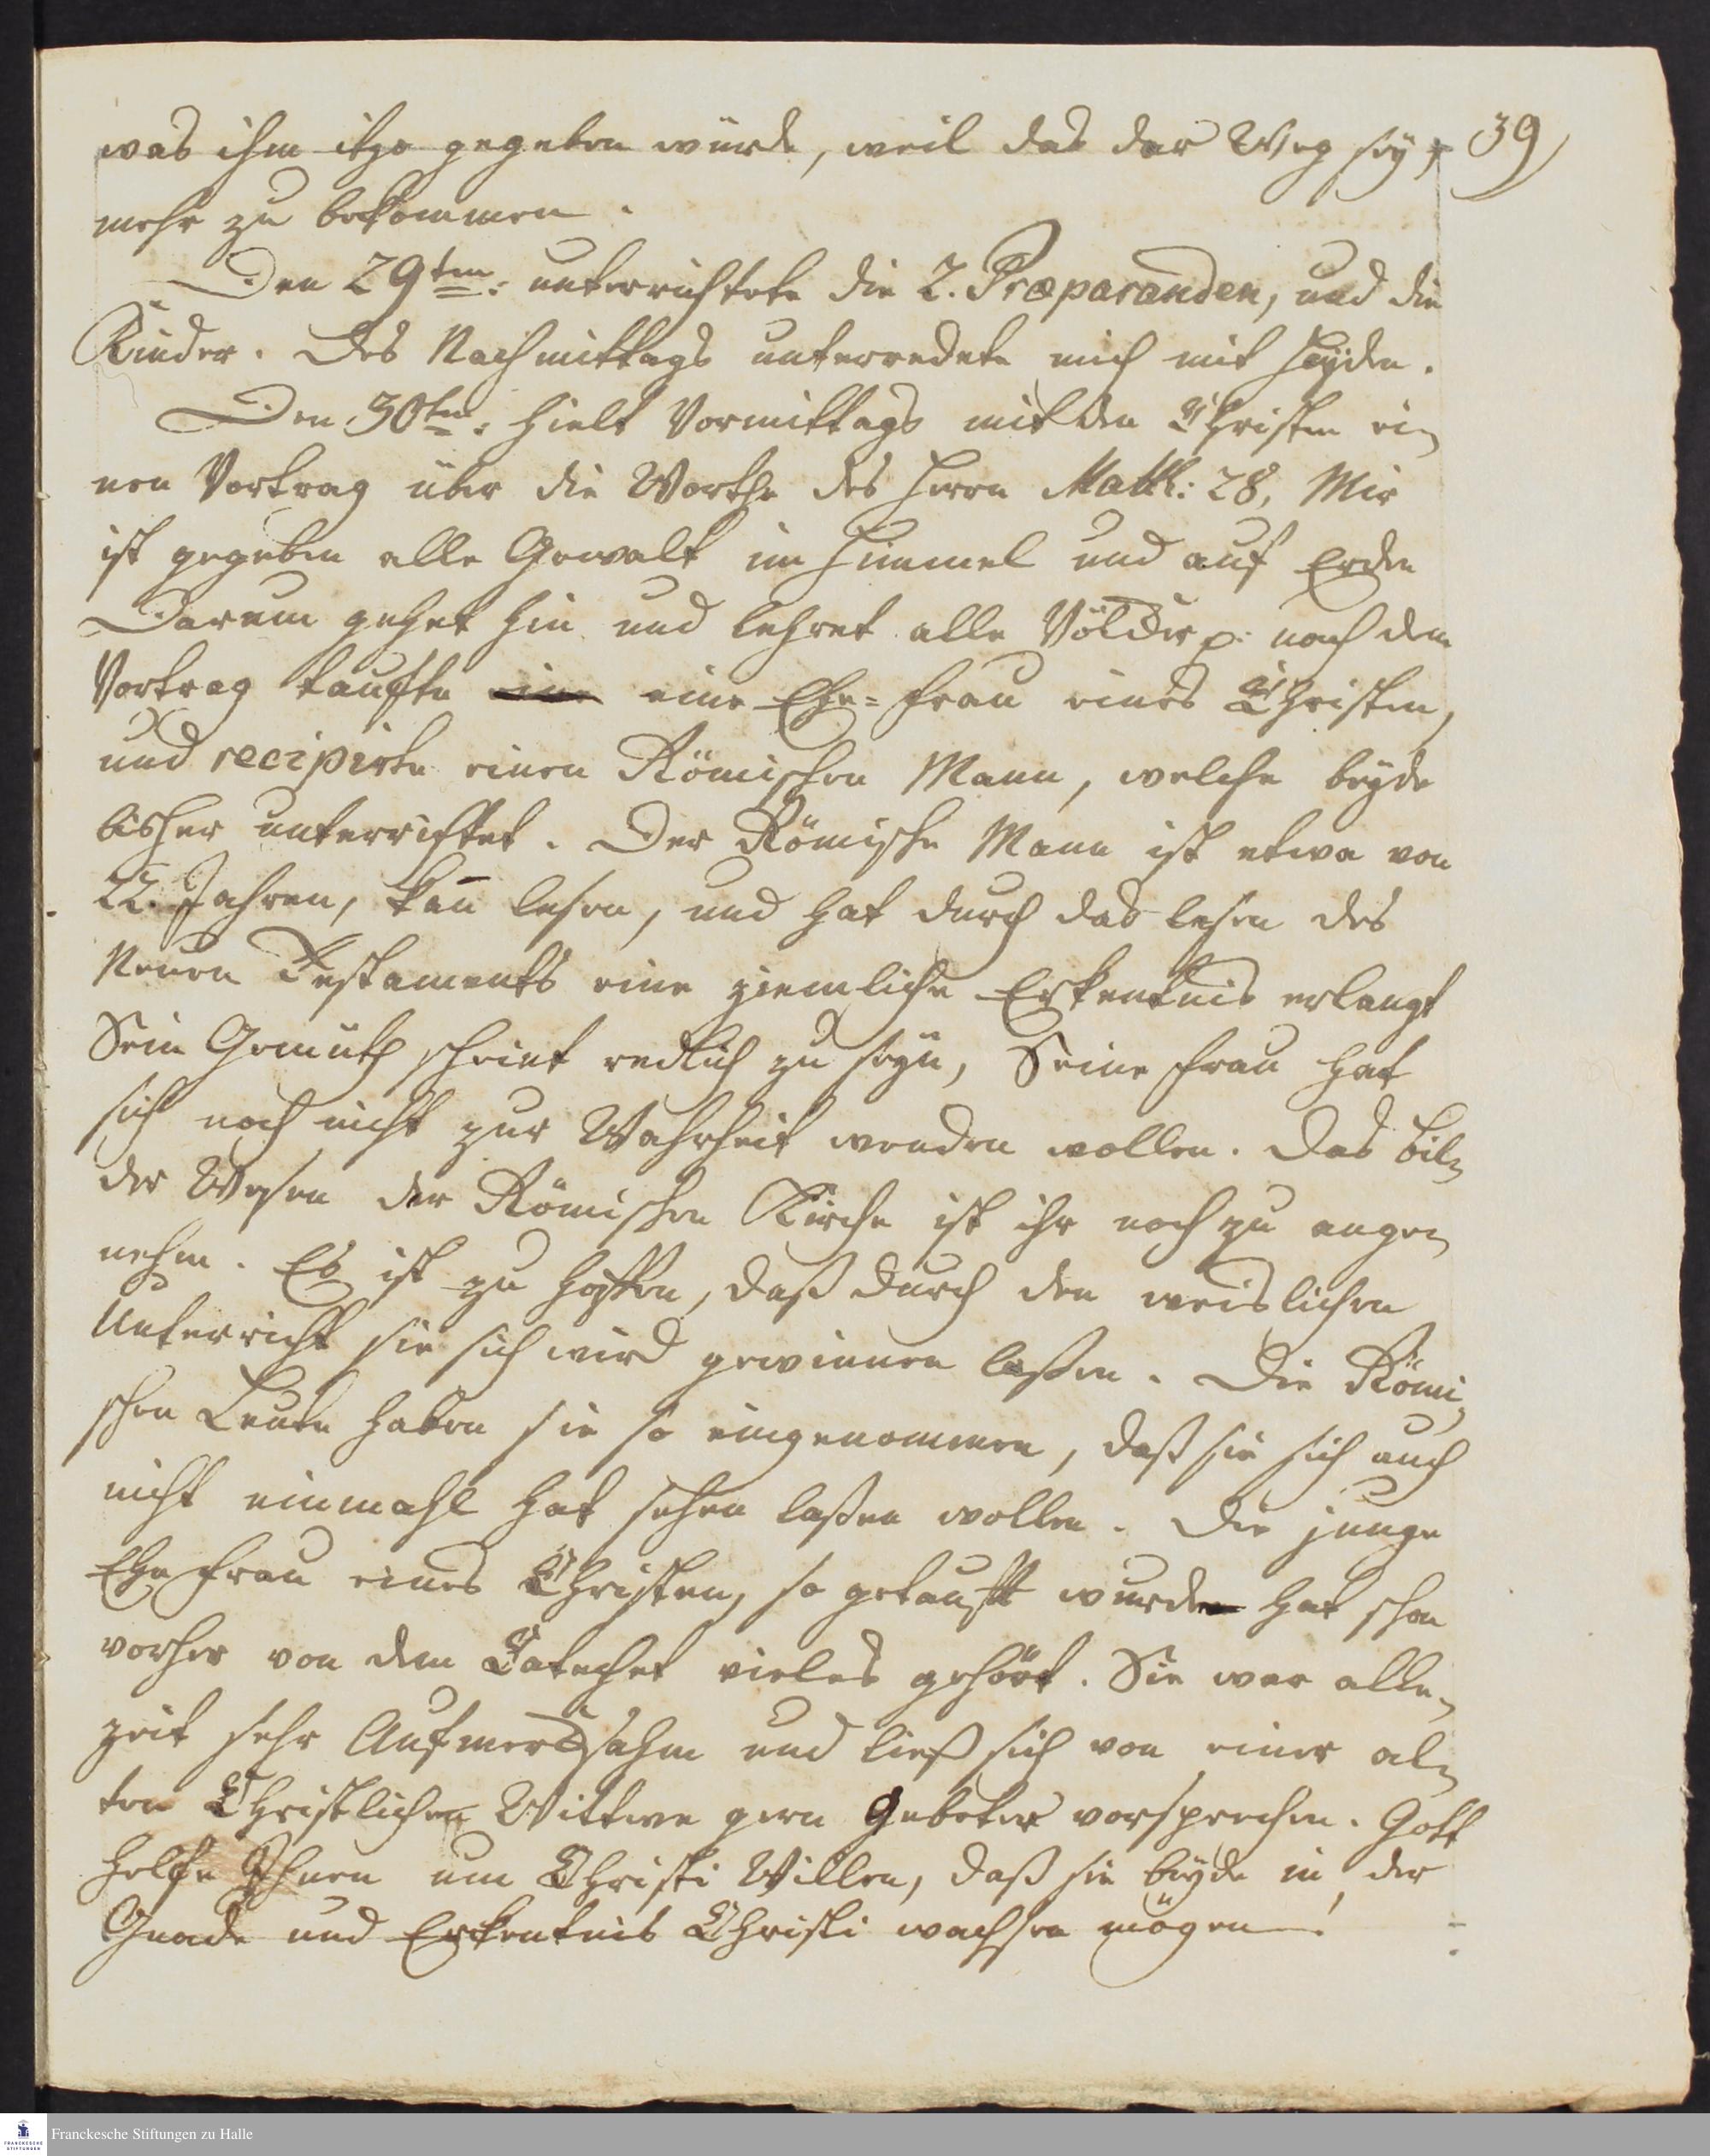 was ihm itzo gegeben würde, weil das der Weg sey, 39
mehr zu bekommen.
Den 29ten: unterrichtete die 2. Præparanden, und die
Kinder. Des Nachmittags unterredete mich mit Heyden.
Den 30ten: hielt Vormittags mit den Christen ei-
nen Vortrag über die Worthe des Herrn Matth: 28, Mir
ist gegeben alle Gewalt im Himmel und auf Erden
Darum gehet hin und lehret alle Völcker p. nach dem
Vortrag taufte eine eine Ehe-frau eines Christen,
und recipirte einen Römischen Mann, welche beyde
bisher unterrichtet. Der Römische Mann ist etwa von
22. Jahren, kan̄ lesen, und hat durch das lesen des
Neuen Testaments eine ziemliche Erkentnis erlangt
Sein Gemüth scheint redlich zu seyn, Seine frau hat
sich noch nicht zur Wahrheit wenden wollen. Das bil-
der Wesen der Römischen Kirche ist ihr noch zu ange-
nehm. Es ist zu hoffen, daß durch den weislichen
Unterricht sie sich wird gewinnen laßen. Die Römi-
schen Leute haben sie so eingenommen, daß sie sich auch
nicht einmahl hat sehen laßen wollen. Die junge
Ehe frau eines Christen, so getaufft wurde hat schon
vorher von dem Catechet vieles gehört. Sie war alle-
zeit sehr Aufmercksahm und ließ sich von einer al-
ten Christlichen Wittwe gern Gebeter vorsprechen. Gott
helfe Ihnen um Christi Willen, daß sie beyde in der
Gnade und Erkentnis Christi wachsen mögen!
Franckesche Stiftungen zu Halle
FRANCKESCHE
STIFTUNGEN